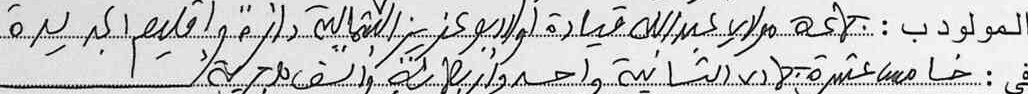 المولود ب: جماعة مولاي عبد الله قيادة أولاد بوعزيز الشمالية دائرة وإقليم الجديدة
في: خامس عشر جمادى الثانية واحد وأربعمائة وألف هجرية